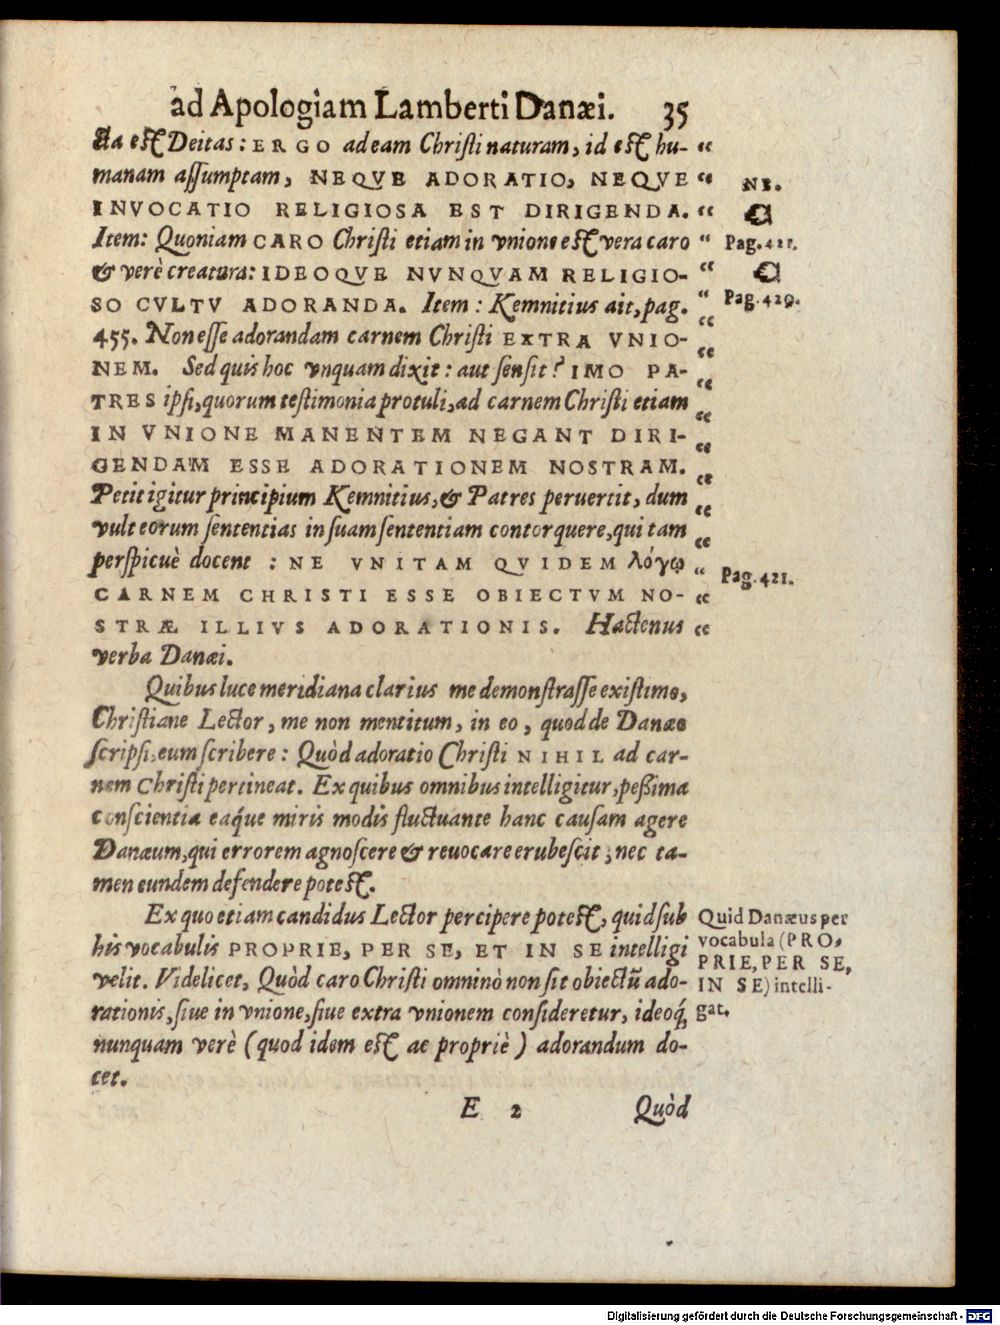 ad Apologiam Lamberti Danæi. 35
sta est Deitas: ERGO ad eam Christi naturam, id est hu-
manam assumptam, NEQVE ADORATIO, NEQVE
INVOCATIO RELIGIOSA EST DIRIGENDA.
Item: Quoniam CARO Christi etiam in vnione est vera caro
& verè creatura: IDEOQVE NVNQVAM RELIGIO-
SO CVLTV ADORANDA. Item: Kemnitius ait, pag.
455. Non esse adorandam carnem Christi EXTRA VNIO-
NEM. Sed quis hoc vnquam dixit: aut sensit? IMO PA-
TRES ipsi, quorum testimonia protuli, ad carnem Christi etiam
IN VNIONE MANENTEM NEGANT DIRI-
GENDAM ESSE ADORATIONEM NOSTRAM.
Petit igitur principium Kemnitius, & Patres peruertit, dum
vult eorum sententias in suam sententiam contorquere, qui tam
perspicuè docent: NE VNITAM QVIDEM λόγῳ
CARNEM CHRISTI ESSE OBIECTVM NO-
STRÆ ILLIVS ADORATIONIS. Hactenus
verba Danæi.
NB.
Pag. 421.
Pag. 429.
Pag. 421.
Quibus luce meridiana clarius me demonstrasse existimo,
Christiane Lector, me non mentitum, in eo, quod de Danæo
scripsi, eum scribere: Quòd adoratio Christi NIHIL ad car-
nem Christi pertineat. Ex quibus omnibus intelligitur, peßima
conscientia eaq́ue miris modis fluctuante hanc causam agere
Danæum, qui errorem agnoscere & reuocare erubescit, nec ta-
men eundem defendere potest.
Ex quo etiam candidus Lector percipere potest, quid sub
his vocabulis PROPRIE, PER SE, ET IN SE intelligi
velit. Videlicet, Quòd caro Christi omninò non sit obiectũ ado-
rationis, siue in vnione, siue extra vnionem consideretur, ideoq́;
nunquam verè (quod idem est ac propriè) adorandum do-
cet.
Quid Danæus per
vocabula (PRO-
PRIE, PER SE,
IN SE) intelli-
gat.
E 2 Quòd
Digitalisierung gefördert durch die Deutsche Forschungsgemeinschaft - DFG